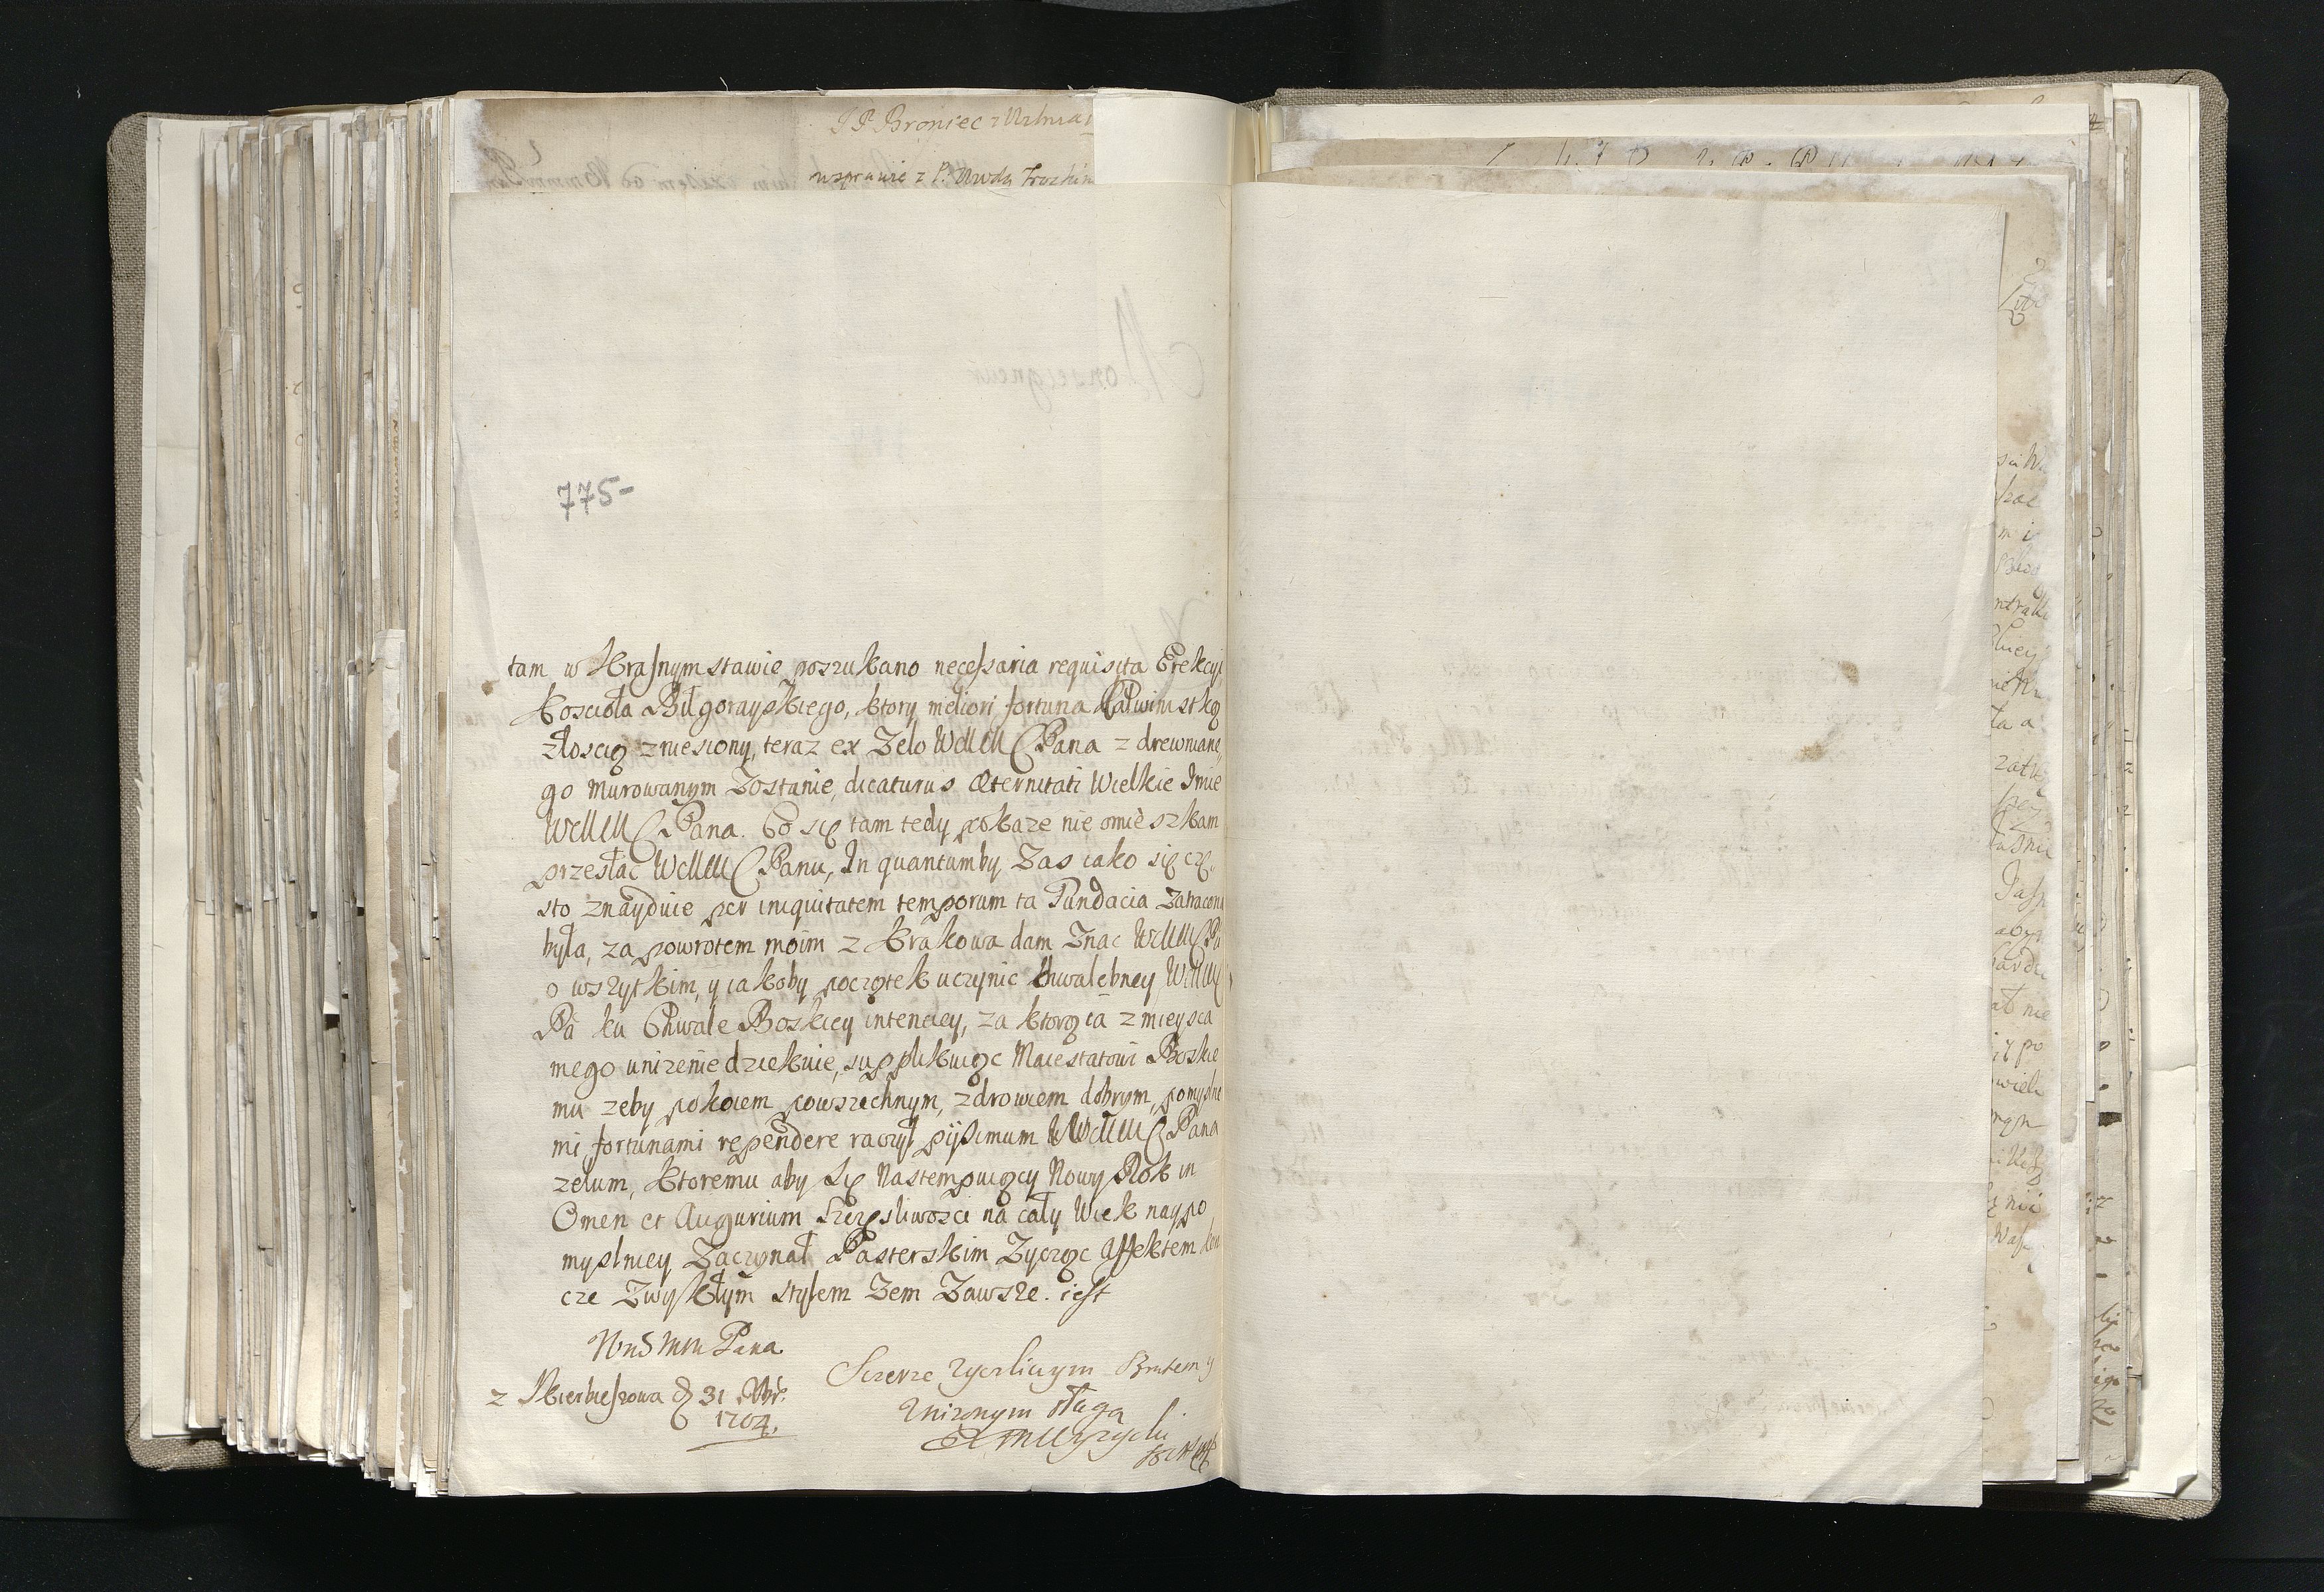 JP Broniec z Wilna
wsprawie z P. Trockim
775-
tam w Krasnymstawie poszukano necessaria requisita Erekcyi
Kościoła Biłgorayskiego, ktory meliori fortuna Kalwinistką
złością zniesiony, teraz ex Zelo WMM Pana z drewniane,
go murowanym Zostanie, dicaturus æternitati Wielkie Imie
WMM Pana. Co się tam tedy pokaze nie omieszkam
przesłac WMM Panu, In quantumby Zas iako się czę,
sto znayduie per iniquitatem temporum ta Fundacia zatracona
była, za powrotem moim z Krakowa dam Znac WMM Pa
o wszytkim, y iakoby początek uczynic Chwalebney WMM
Pa ku Chwale Boskiey intenciey, za ktorą ia z mieysca
mego unizenie dziekuie, supplikuiąc Maiestatowi Boskie
mu zeby pokoiem powszechnym, zdrowiem dobrym, pomyslne
mi fortunami rependere raczył piissimum WMM Pana
zelum, Ktoremu aby się Nastempuiący Nowy Rok in
Omen et Augurium Szczęsliwosci na cały Wiek naypo
myslniey Zaczynał Pasterskim Zycząc Affektem
cze Zwykłym stylem Zem Zawsze iest
Pana
z Skierbieszowa d 31 Xbr.
1704.
Szerze zyczliwym Bratem y
Unizonym sługa
Wyzycki